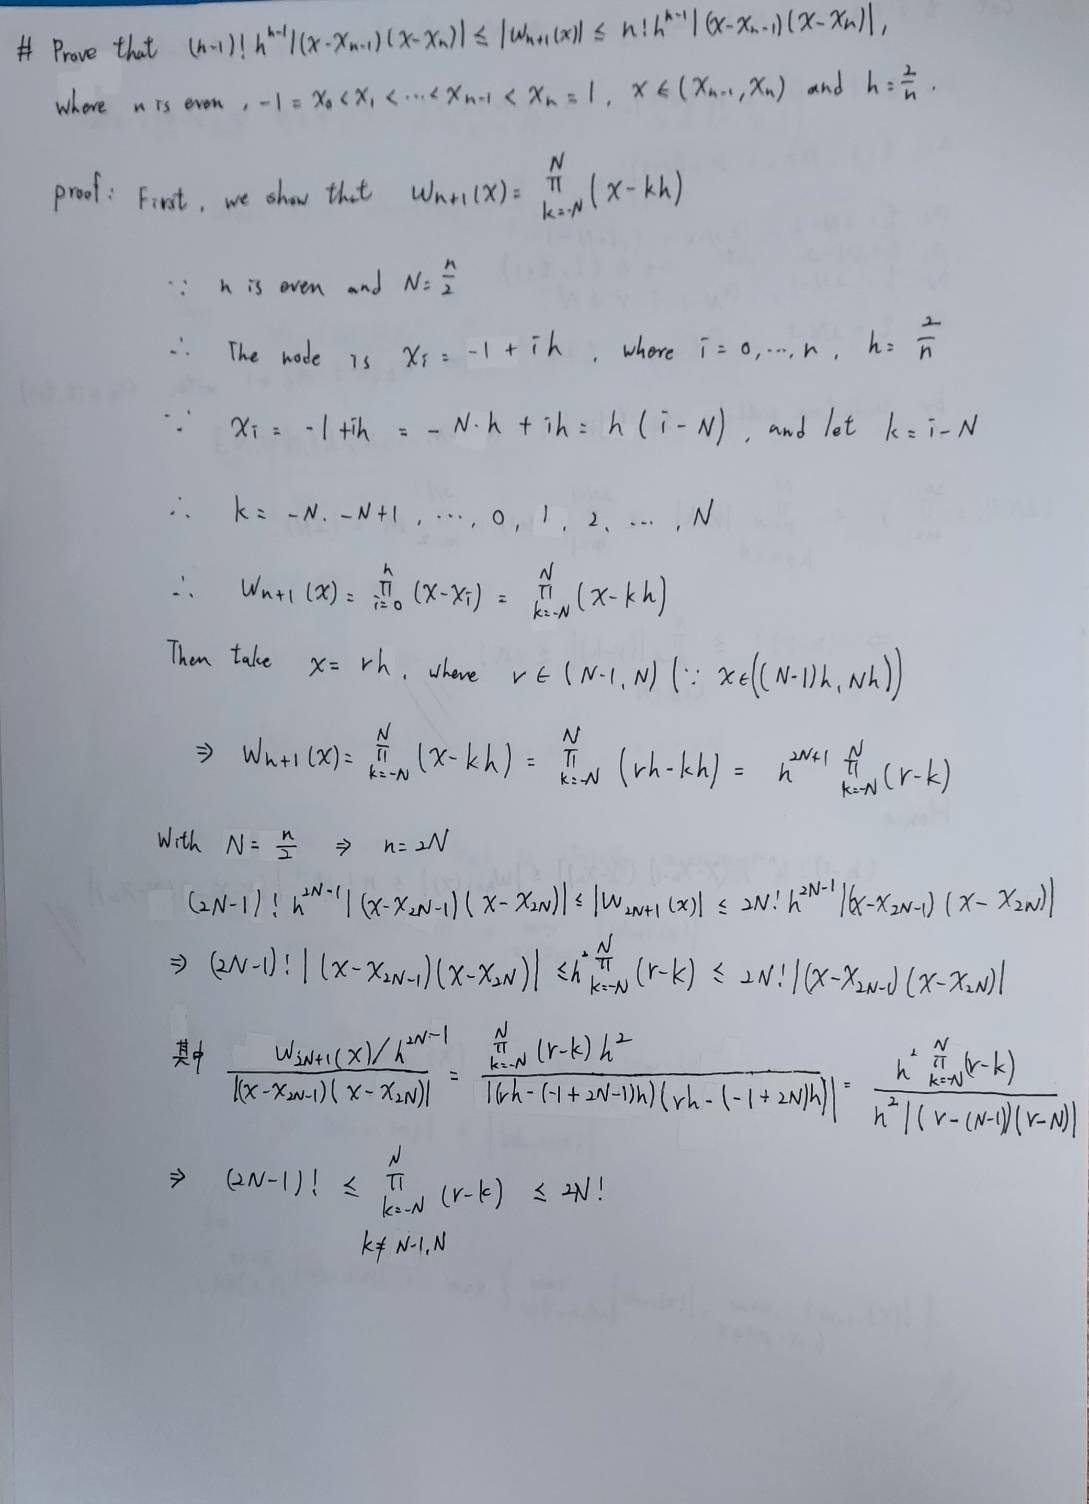 # Prove that (n-1)! h^{n-1} |(x-x_{n-1})(x-x_n)| ≤ |W_{n+1}(x)| ≤ n! h^{n-1} |(x-x_{n-1})(x-x_n)|,
where n is even, -1 = x_0 < x_1 < ... < x_{n-1} < x_n = 1, x ∈ (x_{n-1}, x_n) and h = 2/n.
proof: First, we show that W_{n+1}(x) = ∏_{k=-N}^{N} (x-kh)
∵ n is even and N = n/2
∴ The node is x_i = -1 + ih, where i = 0, ..., n, h = 2/n
∵ x_i = -1 + ih = -N·h + ih = h(i-N), and let k = i-N
∴ k = -N, -N+1, ..., 0, 1, 2, ..., N
∴ W_{n+1}(x) = ∏_{i=0}^{n} (x-x_i) = ∏_{k=-N}^{N} (x-kh)
Then take x = rh, where r ∈ (N-1, N) (∵ x ∈ ((N-1)h, Nh))
⇒ W_{n+1}(x) = ∏_{k=-N}^{N} (x-kh) = ∏_{k=-N}^{N} (rh-kh) = h^{2N+1} ∏_{k=-N}^{N} (r-k)
With N = n/2 ⇒ n = 2N
(2N-1)! h^{2N-1} |(x-x_{2N-1})(x-x_{2N})| ≤ |W_{2N+1}(x)| ≤ 2N! h^{2N-1} |(x-x_{2N-1})(x-x_{2N})|
⇒ (2N-1)! |(x-x_{2N-1})(x-x_{2N})| ≤ h^2 ∏_{k=-N}^{N} (r-k) ≤ 2N! |(x-x_{2N-1})(x-x_{2N})|
其中 (W_{2N+1}(x)/h^{2N-1}) / |(x-x_{2N-1})(x-x_{2N})| = (∏_{k=-N}^{N} (r-k) h^2) / |(rh-(-1+2N-1)h)(rh-(-1+2N)h)| = (h^2 ∏_{k=-N}^{N} (r-k)) / (h^2 |(r-(N-1))(r-N)|)
⇒ (2N-1)! ≤ ∏_{k=-N}^{N} (r-k) ≤ 2N!
k≠N-1, N